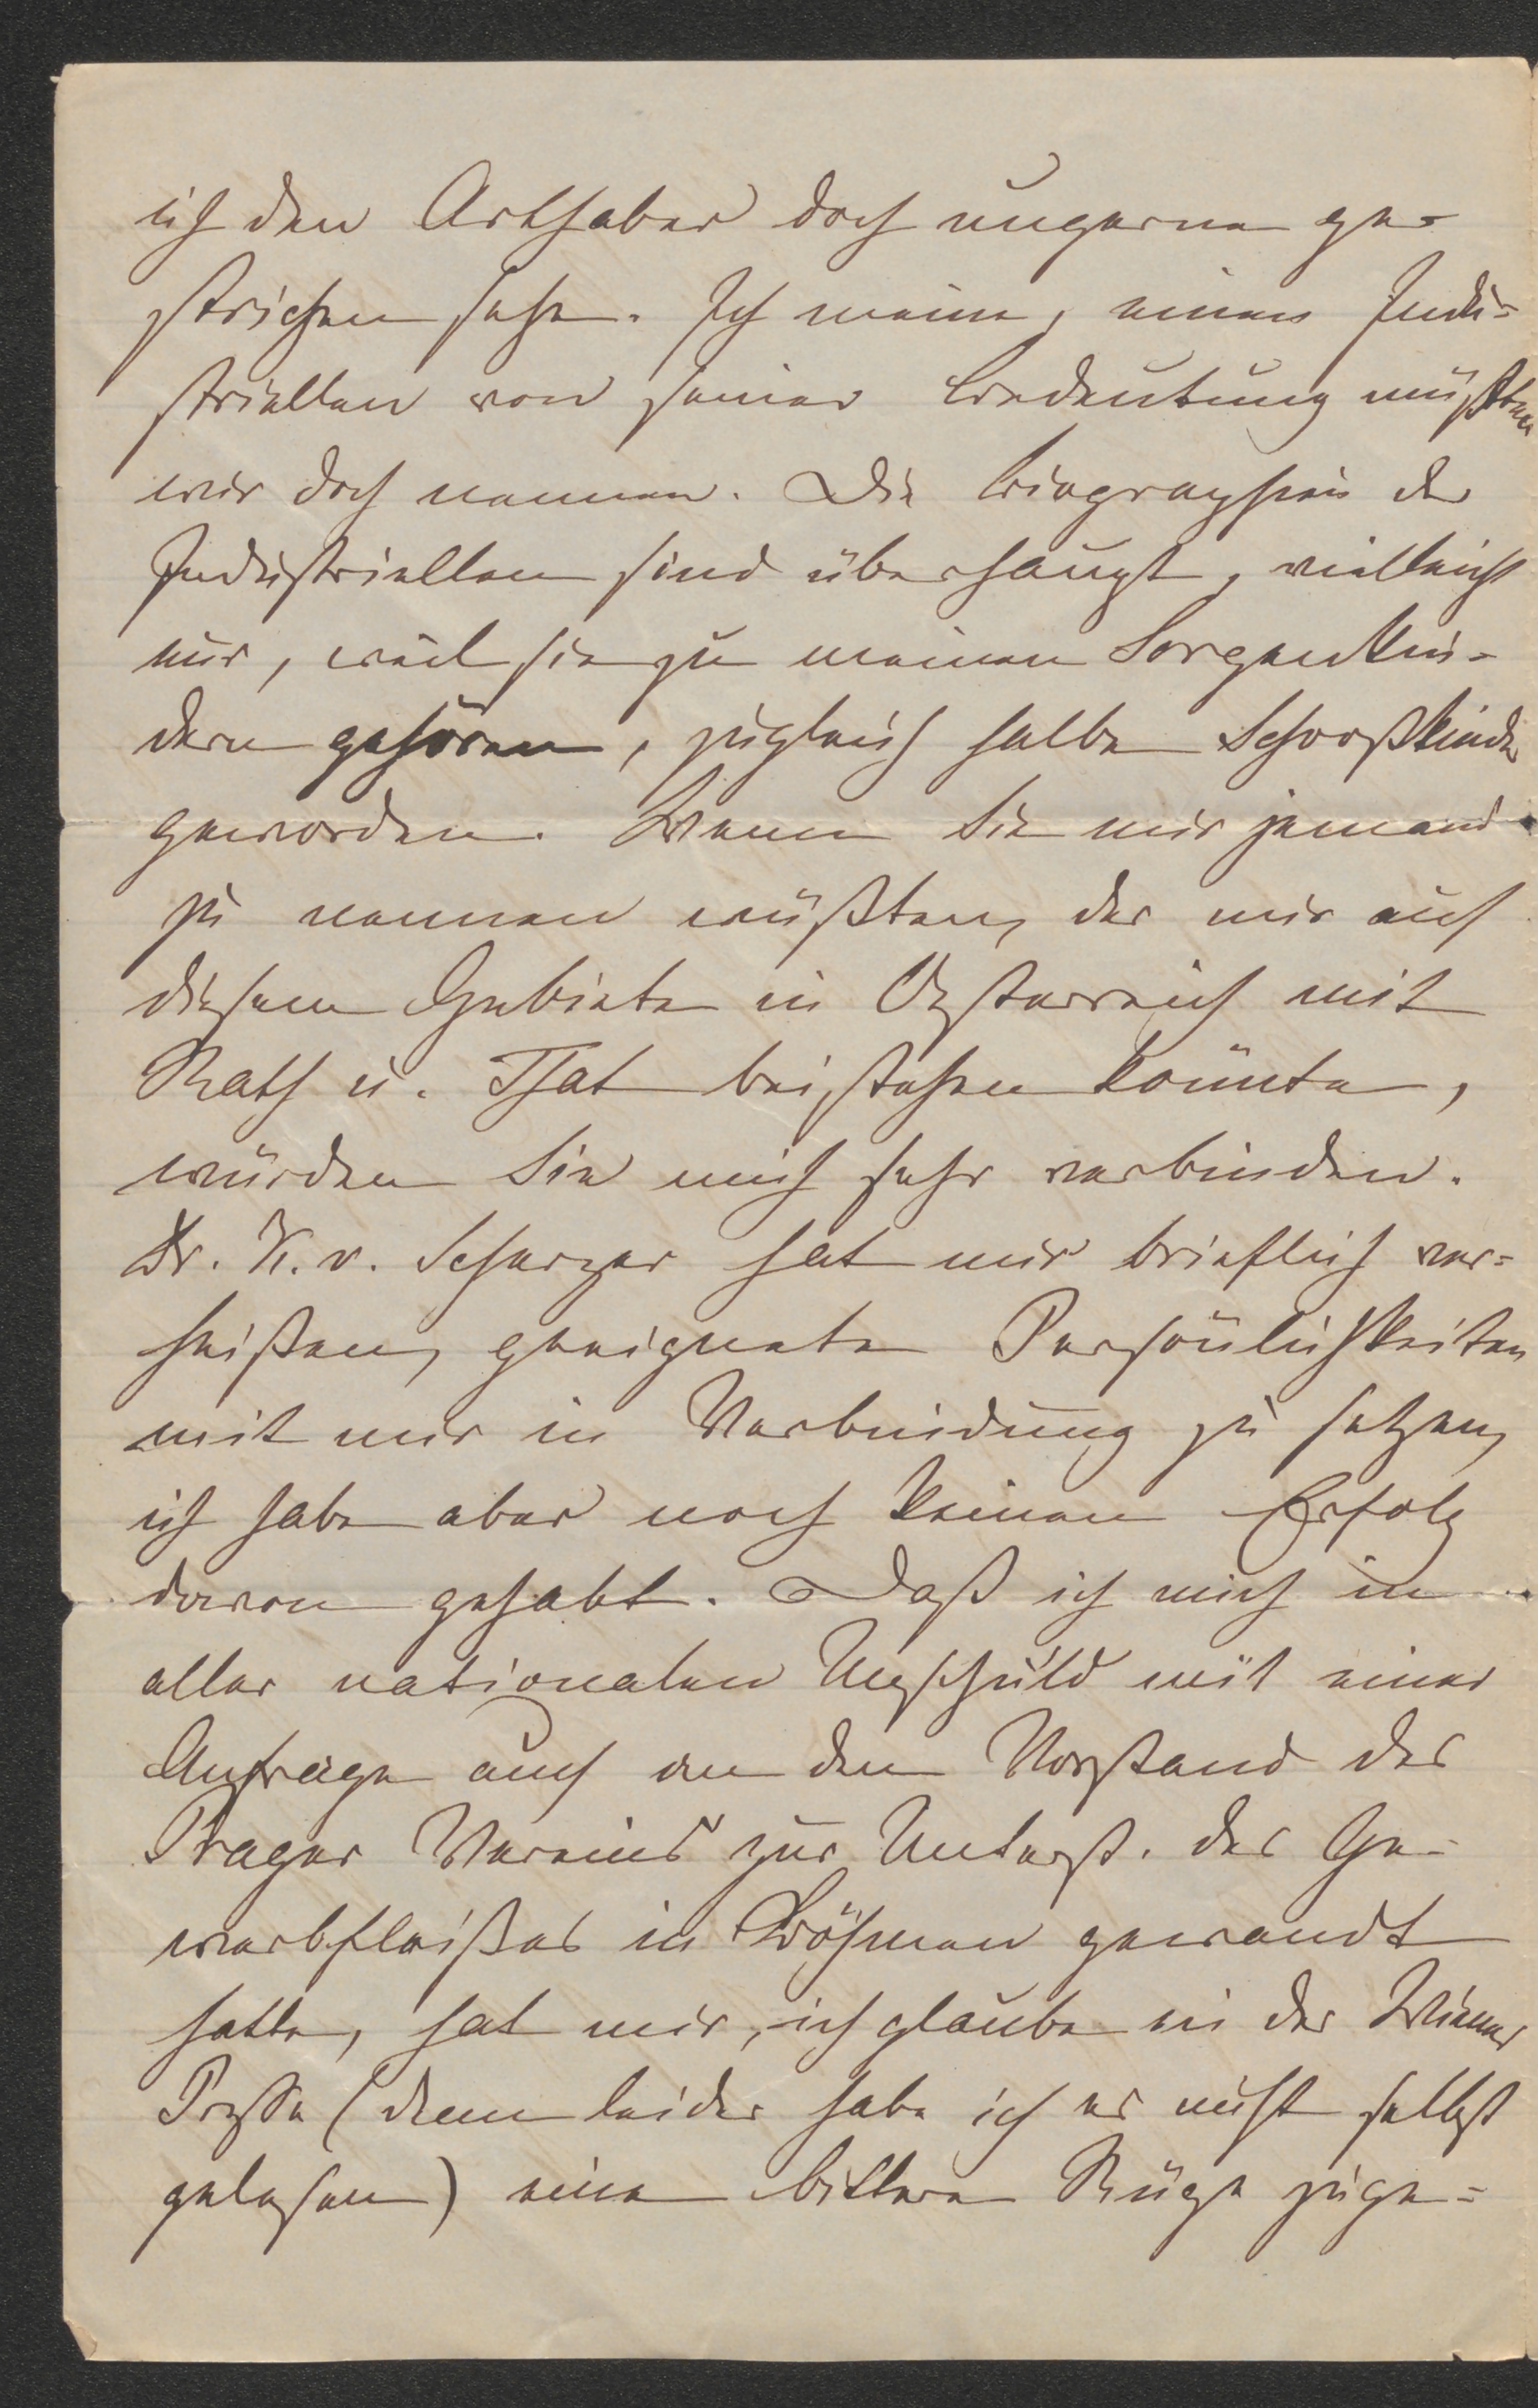 ich den Arthaber doch ungerne ge-
strichen sehe. Ich meine, einen Indu-
striellen von seiner Bedeutung müßten
wir doch nennen. Die Biographien der
Industriellen sind überhaupt, vielleicht
nur, weil sie zu meinen Sorgenkin-
dern gehören, zugleich halbe Schooßkinder
geworden. Wenn Sie mir jemand
zu nennen wüßten, der mir auf
diesem Gebiete in Oesterreich mit
Rath u. That beistehen könnte,
würden Sie mich sehr verbinden.
Dr. K. v. Scherzer hat mir brieflich ver-
heißen, geeignete Persönlichkeiten
mit mir in Verbindung zu setzen,
ich habe aber noch keinen Erfolg
davon gehabt. Daß ich mich in
aller nationalen Unschuld mit einer
Anfrage auch an den Vorstand des
Prager Vereins zur Unterst. des Ge-
werbfleißes in Böhmen gewandt
hatte, hat mir, ich glaube in der Wiener
Presse (denn leider habe ich es nicht selbst
gelesen) eine bittere Rüge zuge-